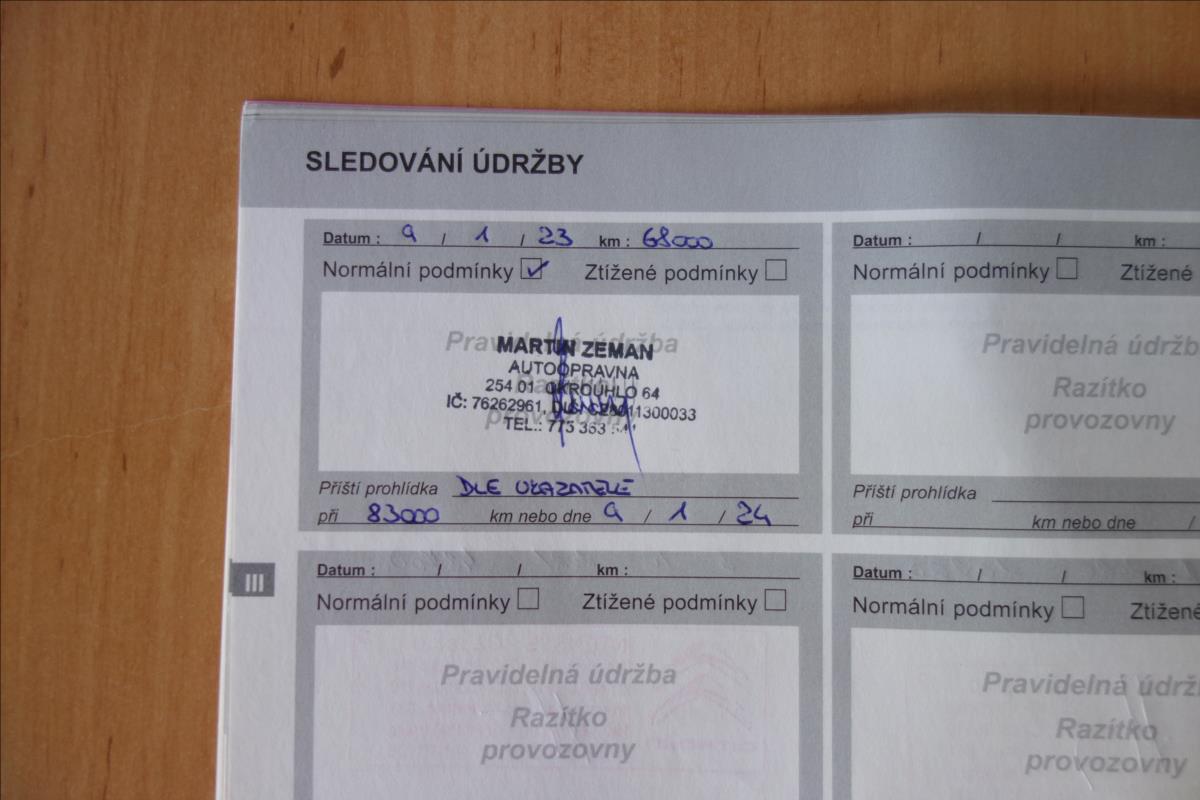 SLEDOVÁNÍ ÚDRŽBY
Datum : 9 / 1 / 23 km : 68000
Normální podmínky Ztížené podmínky
Pravidelná údržba
Razítko
provozovny
MARTIN ZEMAN
AUTOOPRAVNA
254 01 OKROUHLO 64
IČ: 76262961,
TEL.: 775 353
Příští prohlídka DLE UKAZATELE
při 83000 km nebo dne 9 / 1 / 24
Datum : / / km :
Normální podmínky Ztížené
Pravidelná údržb
Razítko
provozovny
Příští prohlídka
při km nebo dne /
III
Datum : / / km :
Normální podmínky Ztížené podmínky
Pravidelná údržba
Razítko
provozovny
Datum : / / km :
Normální podmínky Ztížené
Pravidelná údrž
Razítko
provozovny